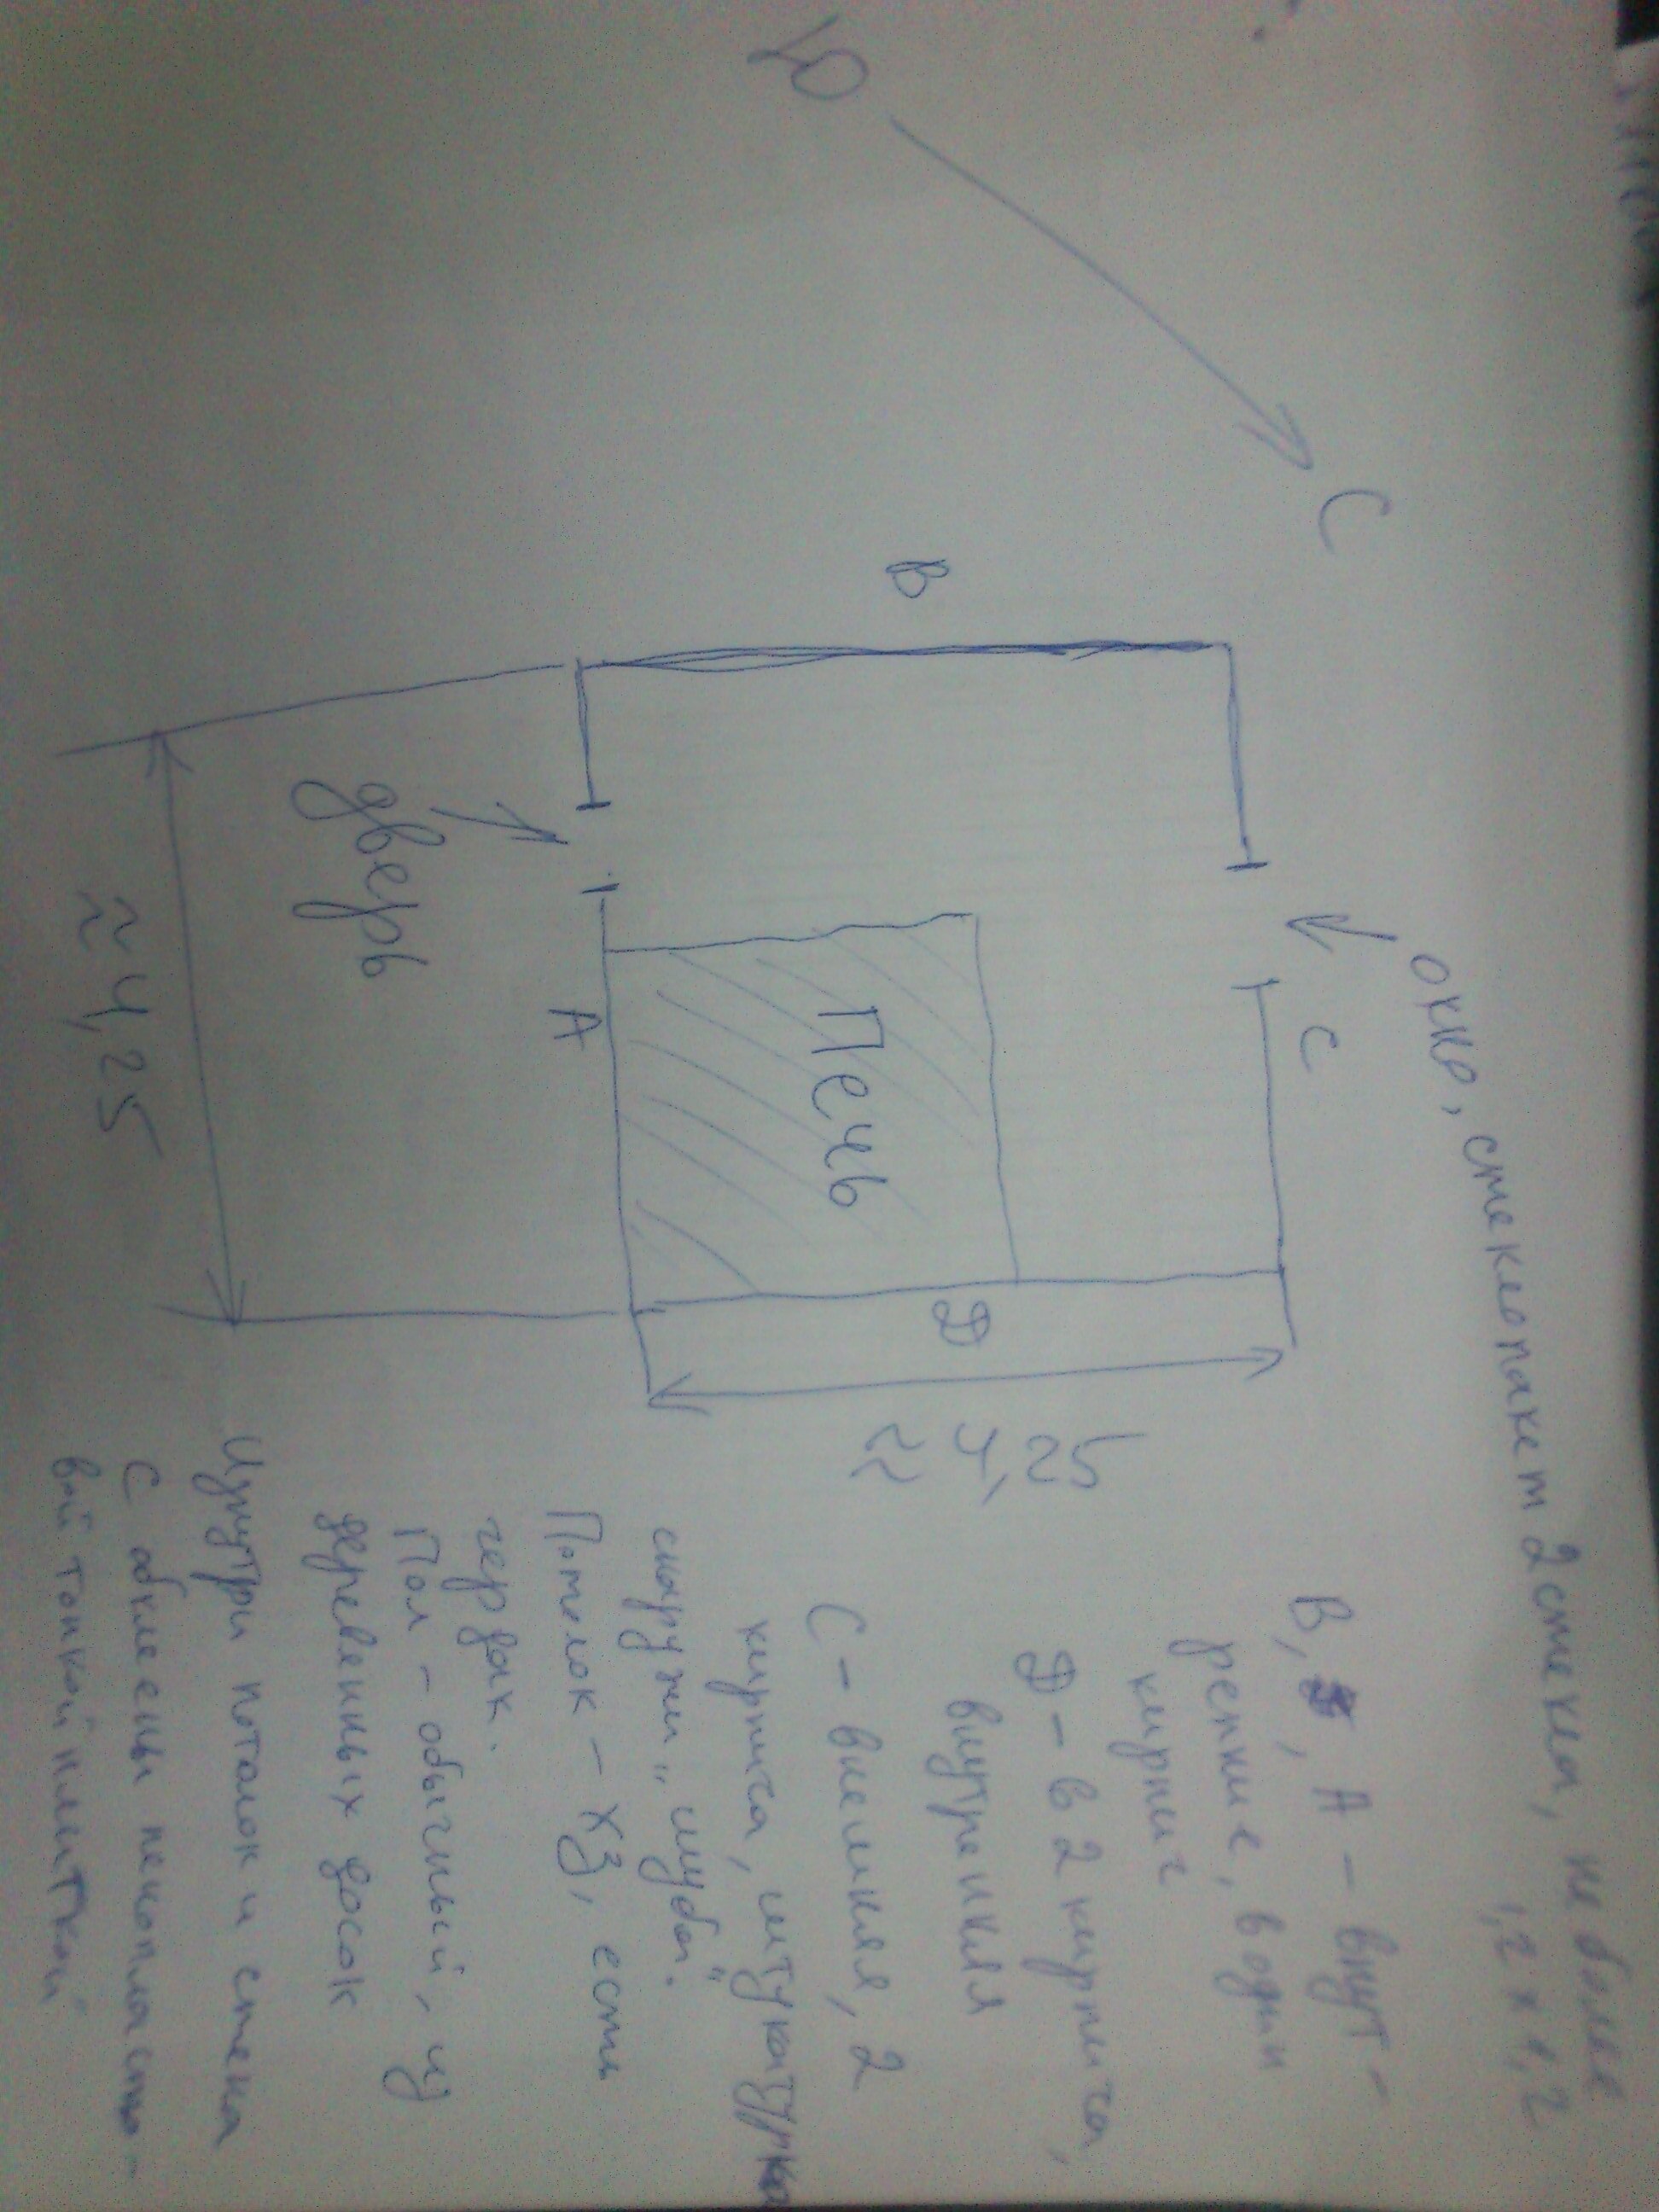 Ю
С
B
окно, стеклопакет 2 стекла, не более
1,2 x 1,2
C
дверь
A
Печь
D
≈ 4,25
≈ 4,25
B, A - внут-
ренние, в один
кирпич
D - в 2 кирпича,
внутренняя
C - внешняя, 2
кирпича, штукатурка
снаружи "шуба".
Потолок - ХЗ, есть
чердак.
Пол - обычный, из
деревянных досок
Изнутри потолок и стена
C обклеены пенопласто-
вой тонкой плиткой